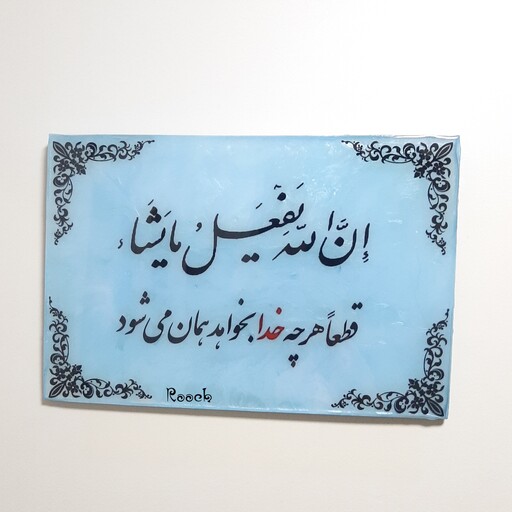 إِنَّ اللّهَ یَفعَلُ مایَشَاء
قطعاً هرچه خدا بخواهد همان می شود
Rooch